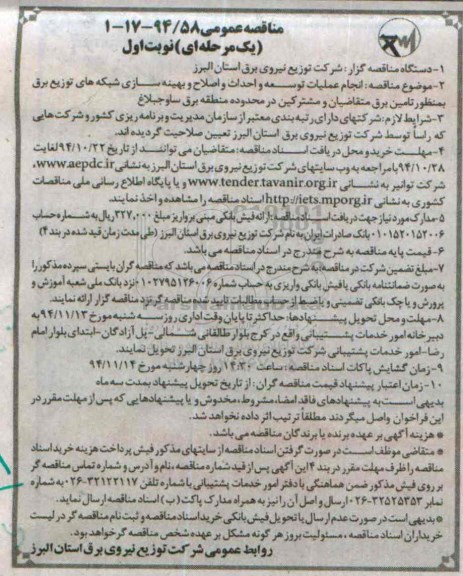 مناقصه عمومی ۹۴/۵۸-۱۷-۱
(یک مرحله ای) نوبت اول
۱- دستگاه مناقصه گزار: شرکت توزیع نیروی برق استان البرز
۲- موضوع مناقصه: انجام عملیات توسعه و احداث و اصلاح و بهینه سازی شبکه های توزیع برق
بمنظور تامین برق متقاضیان و مشترکین در محدوده منطقه برق ساوجبلاغ
۳- شرایط لازم: شرکتهای دارای رتبه بندی معتبر از سازمان مدیریت و برنامه ریزی کشور و شرکت هایی
که رأساً توسط شرکت توزیع نیروی برق استان البرز تعیین صلاحیت گردیده اند.
۴- مهلت خرید و محل دریافت اسناد مناقصه: متقاضیان می توانند از تاریخ ۹۴/۱۰/۲۲ لغایت
۹۴/۱۰/۲۸ با مراجعه به وب سایتهای شرکت توزیع نیروی برق استان البرز به نشانی www.aepdc.ir،
شرکت توانیر به نشانی www.tender.tavanir.org.ir و یا پایگاه اطلاع رسانی ملی مناقصات
کشوری به نشانی http://iets.mporg.ir اسناد مناقصه را مشاهده و اخذ نمایند.
۵- مدارک مورد نیاز جهت دریافت اسناد مناقصه: ارائه فیش بانکی مبنی بر واریز مبلغ ۳۲۷,۰۰۰ ریال به شماره حساب
۰۱۰۱۵۲۰۱۵۲۰۰۶ بانک صادرات ایران به نام شرکت توزیع نیروی برق استان البرز (طی مدت زمان قید شده در بند ۴)
۶- قیمت پایه مناقصه به شرح مندرج در اسناد مناقصه می باشد.
۷- مبلغ تضمین شرکت در مناقصه به شرح مندرج در اسناد مناقصه می باشد که مناقصه گران بایستی سپرده مذکور را
به صورت ضمانتنامه بانکی یا فیش بانکی واریزی به حساب شماره ۰۱۰۲۷۹۵۱۲۶۰۰۶ نزد بانک ملی شعبه آموزش و
پرورش و یا چک بانکی تضمینی و یا ضبط از حساب مطالبات تایید شده مناقصه گر نزد مناقصه گزار ارائه نمایند.
۸- مهلت و محل تحویل پیشنهادها: حداکثر تا پایان وقت اداری روز سه شنبه مورخ ۹۴/۱۱/۱۳ به
دبیرخانه امور خدمات پشتیبانی واقع در کرج بلوار طالقانی شمالی- پل آزادگان- ابتدای بلوار امام
رضا- امور خدمات پشتیبانی شرکت توزیع نیروی برق استان البرز تحویل نمایند.
۹- زمان گشایش پاکات اسناد مناقصه: ساعت ۱۴:۳۰ روز چهارشنبه مورخ ۹۴/۱۱/۱۴
۱۰- زمان اعتبار پیشنهاد قیمت مناقصه گران: از تاریخ تحویل پیشنهاد بمدت سه ماه
بدیهی است به پیشنهادهای فاقد امضا، مشروط، مخدوش و یا پیشنهادهایی که پس از مهلت مقرر در
این فراخوان واصل میگردند مطلقاً ترتیب اثر داده نخواهد شد.
* هزینه آگهی بر عهده برنده یا برندگان مناقصه می باشد.
* متقاضی موظف است در صورت گرفتن اسناد مناقصه از سایتهای مذکور فیش پرداخت هزینه خرید اسناد
مناقصه را ظرف مهلت مقرر در بند ۴ این آگهی پس از قید شماره مناقصه، نام و آدرس و شماره تماس مناقصه گر
بر روی فیش مذکور ضمن هماهنگی با دفتر امور خدمات پشتیبانی با شماره تلفن ۰۲۶-۳۲۱۲۲۱۱۷ به شماره
نمابر ۰۲۶-۳۲۵۲۵۳۵۳ ارسال و اصل آن را نیز به همراه مدارک پاکت (ب) اسناد مناقصه ارسال نماید.
* بدیهی است در صورت عدم ارسال یا تحویل فیش بانکی خرید اسناد مناقصه و ثبت نام مناقصه گر در لیست
خریداران اسناد مناقصه، مسئولیت بروز هر گونه مشکل بر عهده شخص مناقصه گر خواهد بود.
روابط عمومی شرکت توزیع نیروی برق استان البرز